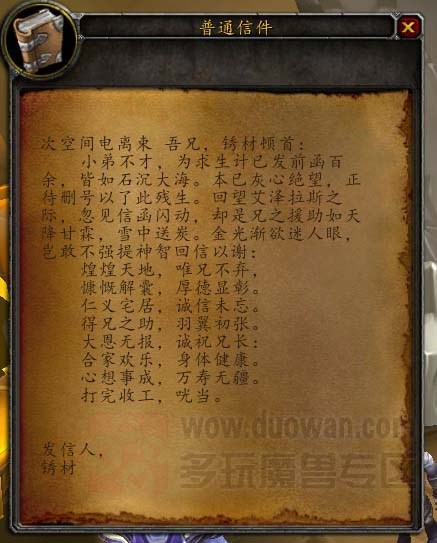 普通信件
次空间电离束 吾兄，锈材顿首：
小弟不才，为求生计已发前函百
余，皆如石沉大海。本已灰心绝望，正
待删号以了此残生。回望艾泽拉斯之
际，忽见信函闪动，却是兄之援助如天
降甘霖，雪中送炭。金光渐欲迷人眼，
岂敢不强提神智回信以谢：
煌煌天地，唯兄不弃，
慷慨解囊，厚德显彰。
仁义宅居，诚信未忘。
得兄之助，羽翼初张。
大恩无报，诚祝兄长：
合家欢乐，身体健康。
心想事成，万寿无疆。
打完收工，咣当。
发信人，
锈材
wow.duowan.com
多玩魔兽专区